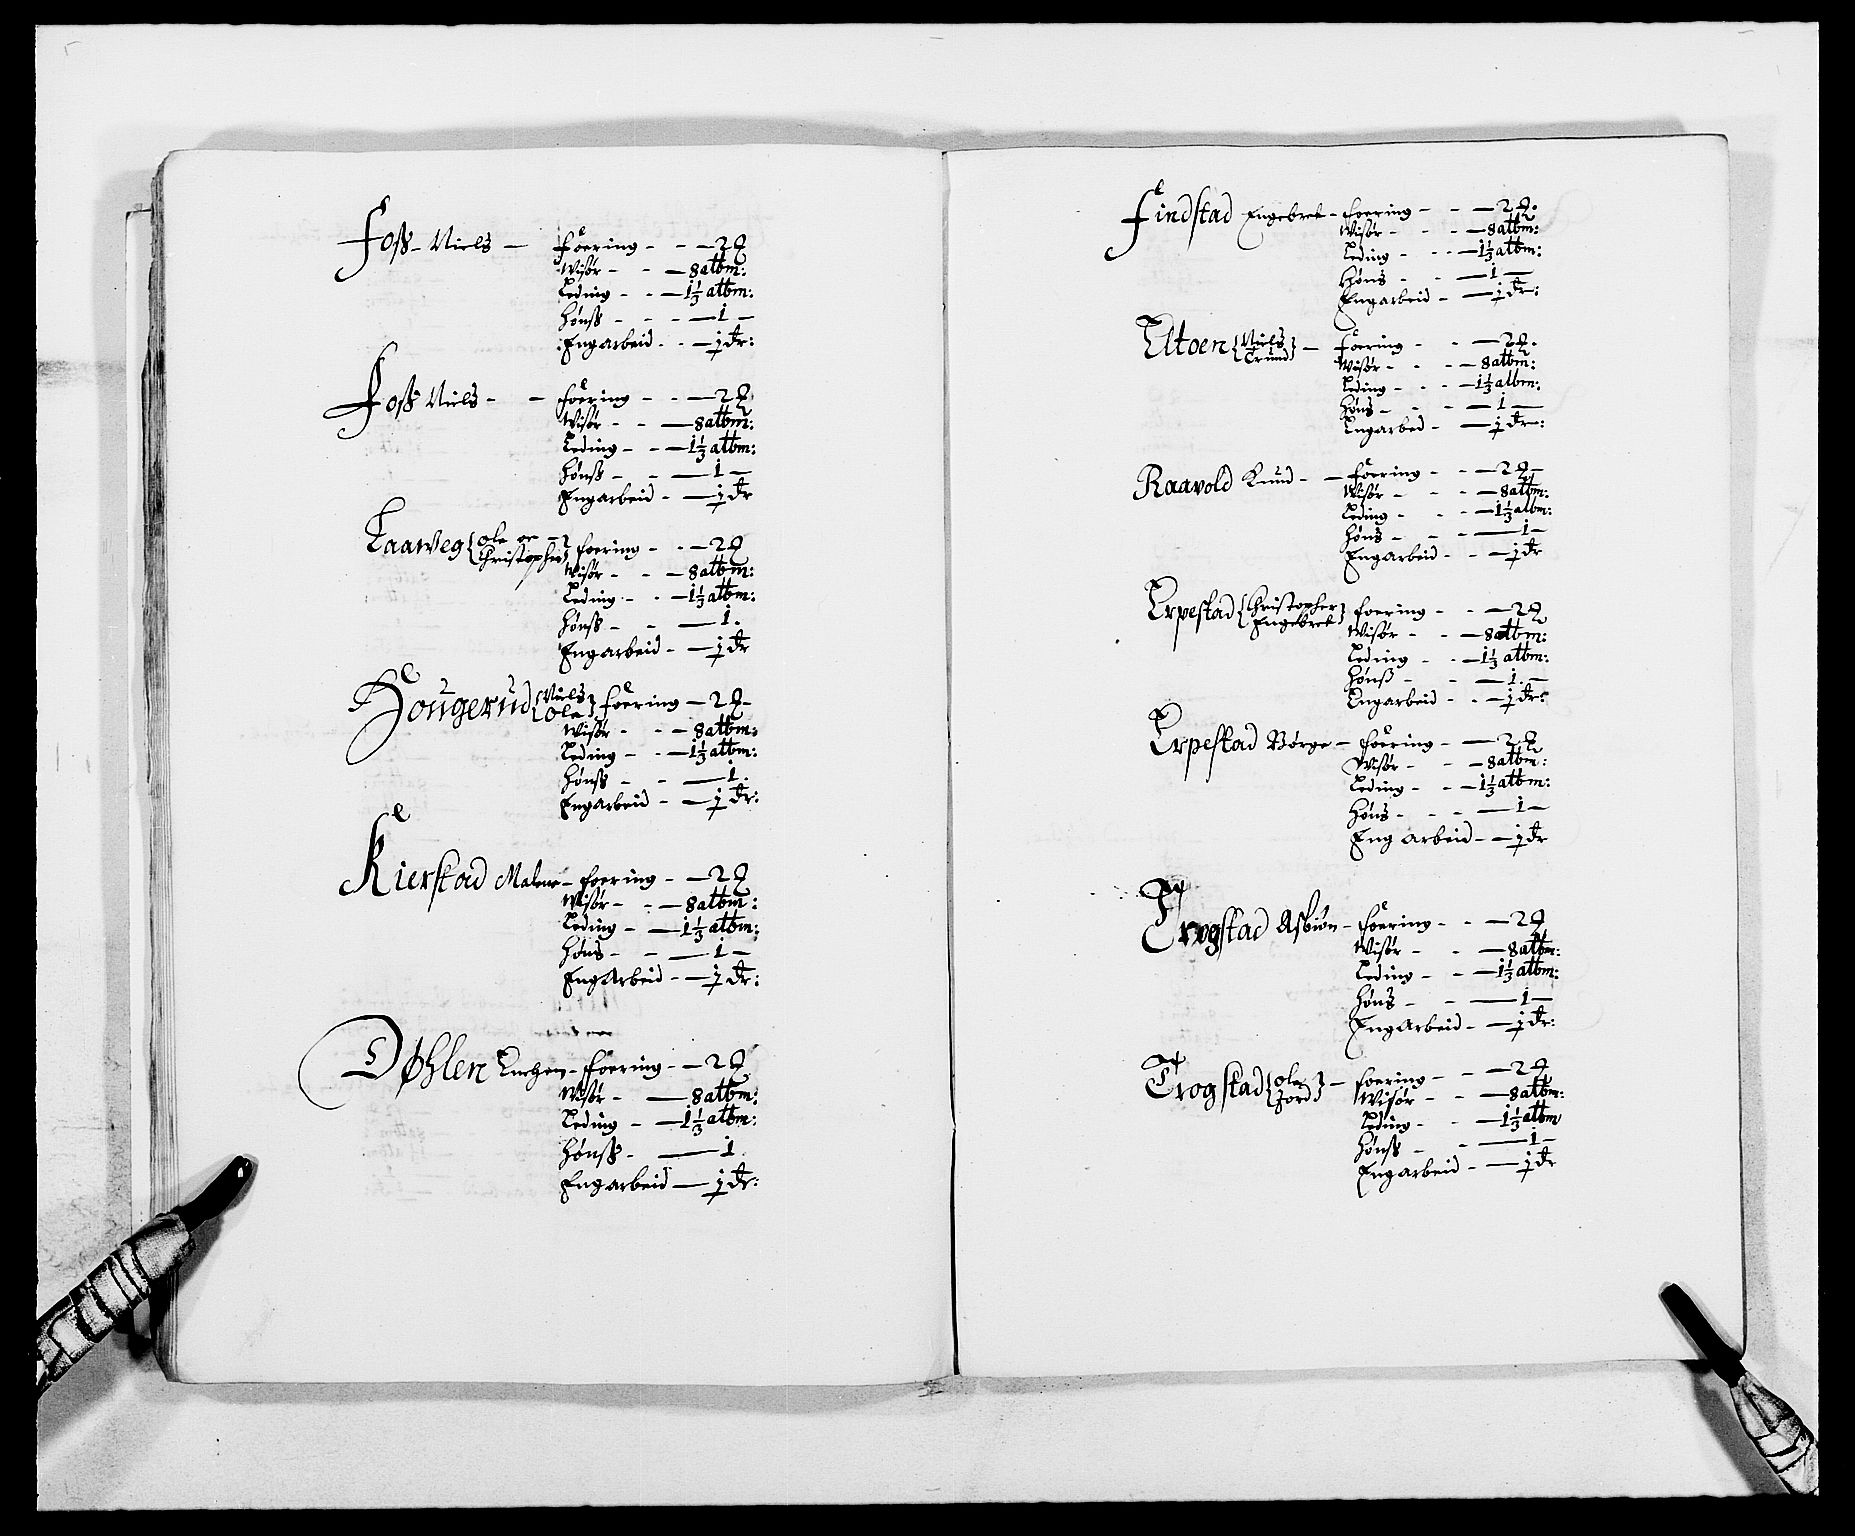 Foss - Niels - foering - - - 2 ₰
Wisør - - - 8 albm:
Leding - - - 1⅓ albm:
hønss - - - 1 -
Engarbeid - - - ½ dr:
Foss Niels - - foering - - - 2 ₰
Wisør - - - 8 albm:
Leding - - - 1⅓ albm:
hønss - - - 1 -
Engarbeid - - ½ dr
Laaweg { Ole oc Christopher } foering - - - 2 ₰
Wisør - - - 8 albm:
Leding - - - 1⅓ albm:
hønss - - - 1.
Engarbeid - - ½ dr
Hougerud { Niels Ole } foering - 2 ₰ -
Wisør - - - 8 albm:
Leding - - - 1⅓ albm:
hønss - - - 1.
Engarbeid - - ½ dr:
Kierstad Malene - foering - - 2 ₰
Wisør - - - 8 albm:
Leding - - 1⅓ albm:
høns - - - 1 -
EngArbeid - - ½ dr:
Døhlen - foering - - 2 ₰
Wisør - - 8 albm:
Leding - - 1⅓ albm:
hønss - - 1.
Engarbeid - ½ dr:
Findstad Engebret - foering - - - 2 ₰.
Wisør - - - 8 albm:
Leding - - - 1⅓ albm:
høns - - - 1 -
Engarbeid - - ½ dr:
Eltoen { Niels Trund } - foering - - - 2 ₰.
Wisør - - - 8 albm:
Leding - - - 1⅓ albm:
høns - - - 1 -
Engarbed - - ½ dr:
Raavold Knud - - foering - - - 2 ₰ -
Wisør - - - 8 albm:
Leding - - - 1⅓ albm:
høns - - - 1 -
Engarbeid - - - ½ dr
Erpestad { Christopher Engebret } foering - - - 2 ₰
Wisør - - - 8 albm:
Leding - - - 1⅓ albm:
hønss - - - 1. -
Engarbeid - - - ½ dr:
Erpestad Børge - foering - - 2 ₰
Wisør - - - 8 albm:
Leding - - - 1⅓ albm:
høns - - - 1 -
Eng arbeid - - ½ dr
Trogstad Asbiøn - foering - - - 2 ₰
Wisør - - - 8 albm:
Leding - - - 1⅓ albm:
høns - - - 1 -
EngArbeid - - ½ dr:
Trogstad { Ole Jord } - foering - - - 2 ₰
Wisør - - - 8 albm:
Leding - - - 1⅓ albm
hønss - - - 1 -
Engarbeid - - ½ dr